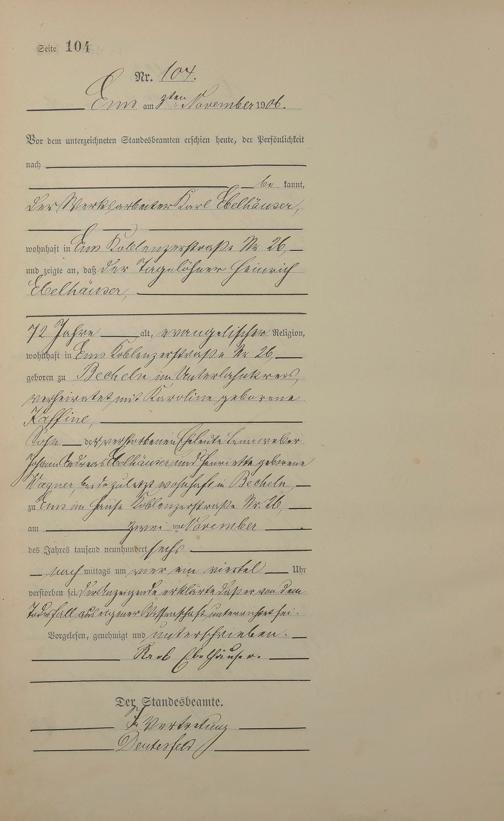 Seite 104
Nr. 104.
Ems am 3ten November 1906.
Vor dem unterzeichneten Standesbeamten erschien heute, der Persönlichkeit
nach
be kannt,
der Werksarbeiter Karl Ebelhäuser,
wohnhaft in Ems Koblenzerstraße Nr. 26
und zeigte an, daß der Tagelöhner Heinrich
Ebelhäuser,
72 Jahre alt, evangelischer Religion,
wohnhaft in Ems Koblenzerstraße Nr. 26,
geboren zu Becheln im Unterlahnkreis,
verheiratet mit Karoline geborene
Sohn der verstorbenen Eheleute Leinweber
Johann Ebelhäuser und Henriette geborene
Wagner, beide zuletzt wohnhaft in Becheln,
zu Ems im Hause Koblenzerstraße Nr. 26,
am zwei ten November
des Jahres tausend neunhundert sechs
nach mittags um vier ein viertel Uhr
verstorben sei. Der Anzeigende erklärte daß er von dem
Todesfall aus eigener Wissenschaft unterrichtet sei.
Vorgelesen, genehmigt und unterschrieben.
Karl Ebelhäuser.
Der Standesbeamte.
In Vertretung